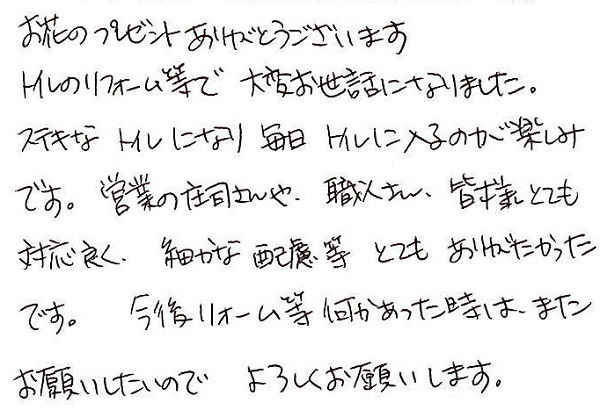 お花のプレゼントありがとうございます
トイレのリフォーム等で 大変お世話になりました。
ステキな トイレになり 毎日 トイレに入るのが楽しみ
です。営業の庄司さんや、職人さん、皆様とても
対応良く、細かな配慮等 とても ありがたかった
です。 今後リォーム等何かあった時は、また
お願いしたいので よろしくお願いします。